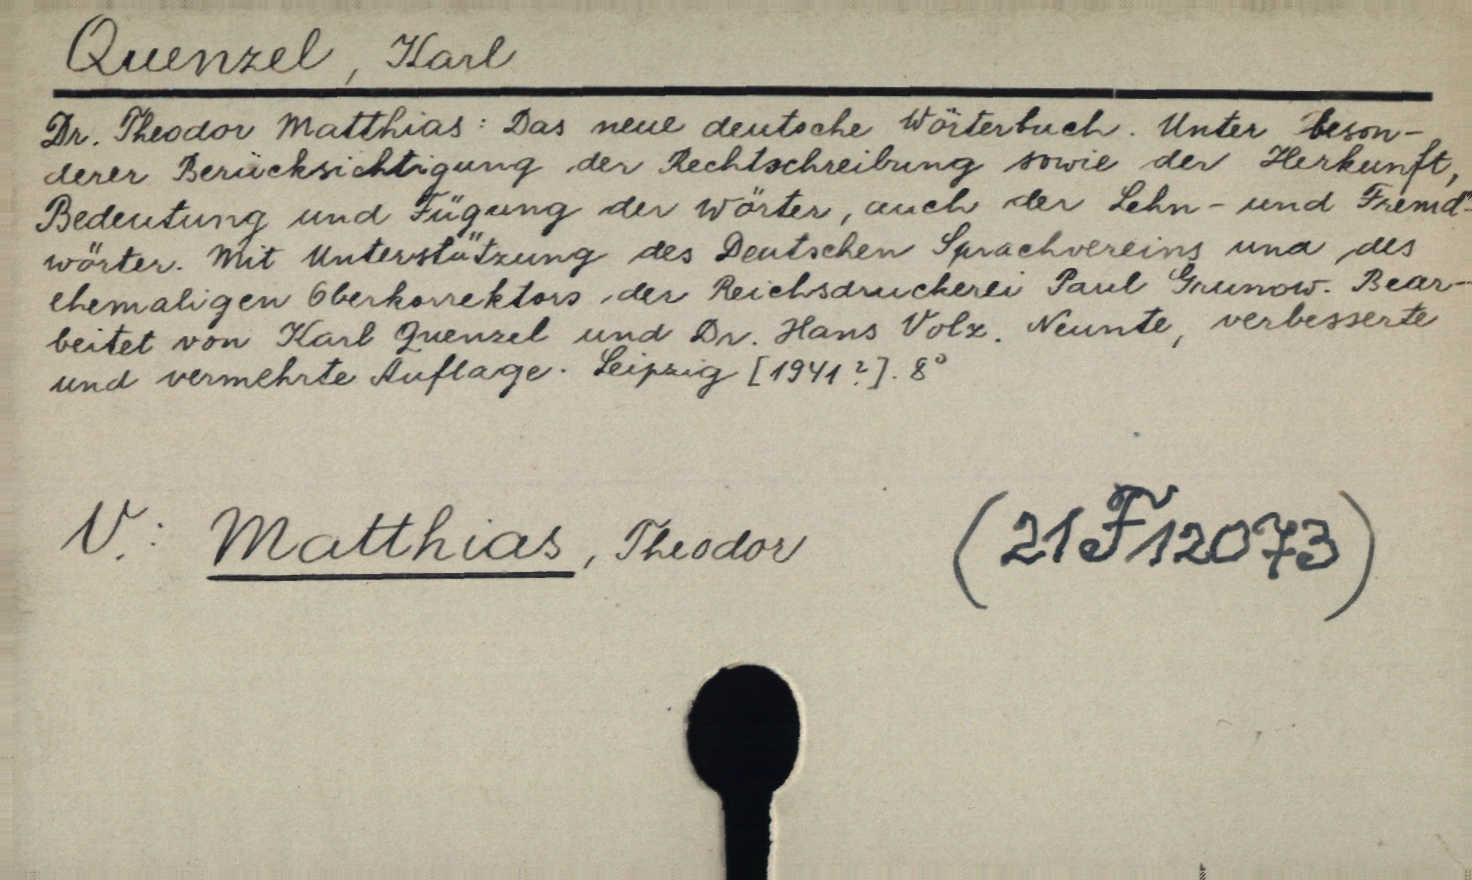 Quenzel, Karl
Dr. Theodor Matthias: Das neue deutsche Wörterbuch. Unter beson-
derer Berücksichtigung der Rechtschreibung sowie der Herkunft,
Bedeutung und Fügung der Wörter, auch der Lehn- und Fremd-
wörter. Mit Unterstützung des Deutschen Sprachvereins und des
ehemaligen Oberkorrektors der Reichsdruckerei Paul Grunow. Bear-
beitet von Karl Quenzel und Dr. Hans Volz. Neunte, verbesserte
und vermehrte Auflage. Leipzig [1941?]. 8°
V.: Matthias, Theodor (21 F 12073)